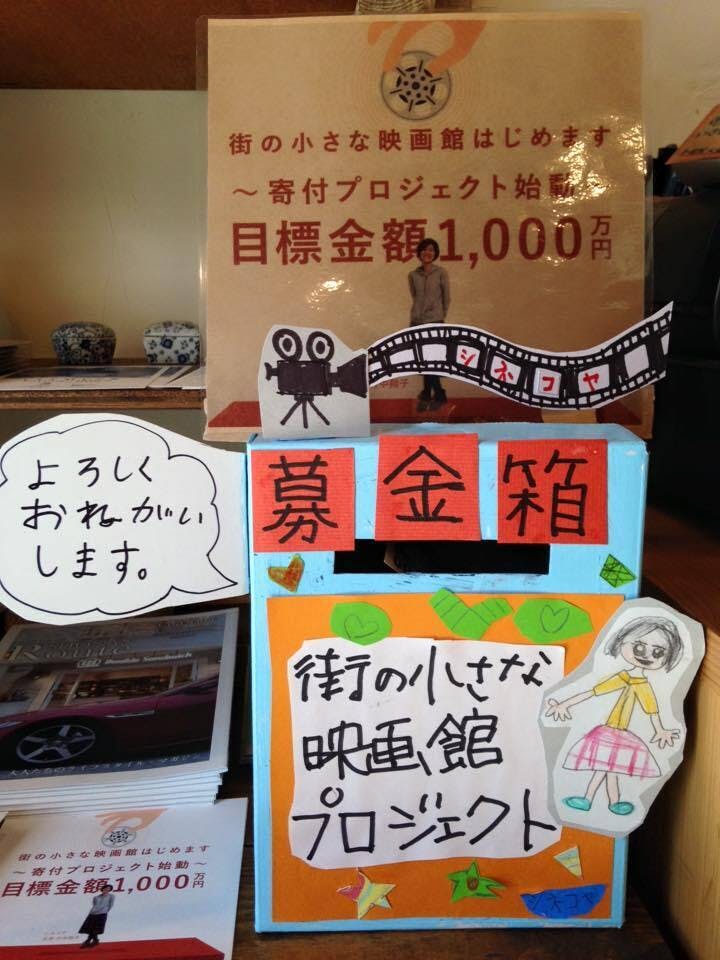 街の小さな映画館はじめます
～寄付プロジェクト始動～
目標金額1,000万円
シネコヤ
募金箱
よろしく
おねがい
します。
街の小さな
映画館
プロジェクト
シネコヤ
街の小さな映画館はじめます
～寄付プロジェクト始動～
目標金額1,000万円